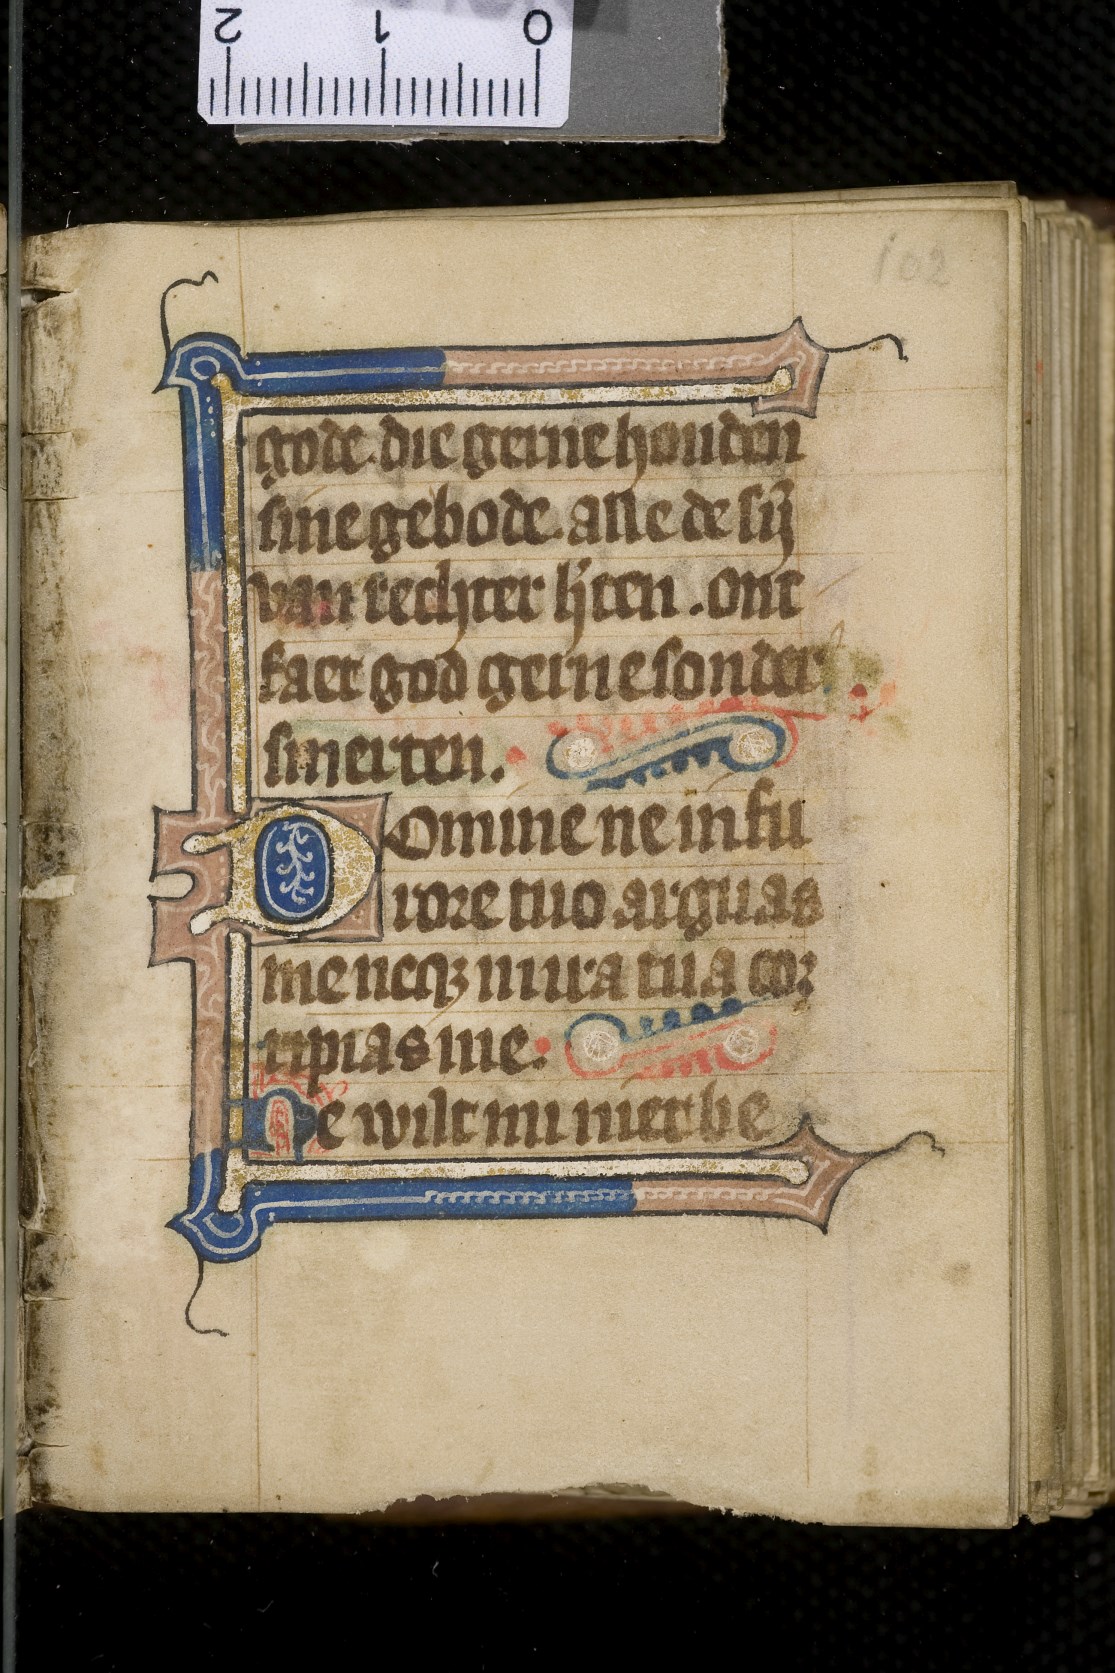 2 1 0
102
gode. die gerne houden
sine gebode. alle de sijn
van rechter h'ten. Ont
faet god gerne sonder
smerten.
Domine ne in fu
rore tuo arguas
me neqꝫ in ira tua cor
ripias me.
He wilt mi niet be